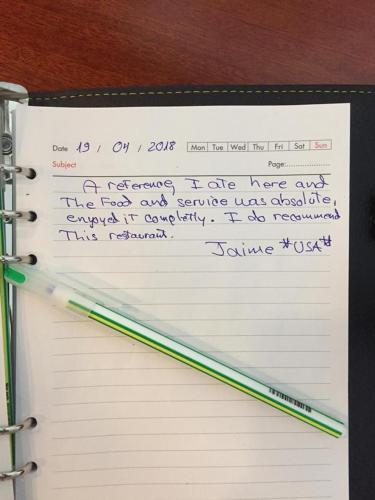 Date 19 / 04 / 2018 Mon Tue Wed Thu Fri Sat Sun
Subject Page:....................
A reference, I ate here and
The Food and service was absolute,
enjoyed it completly. I do recommend
This restaurant.
Jaime *USA*